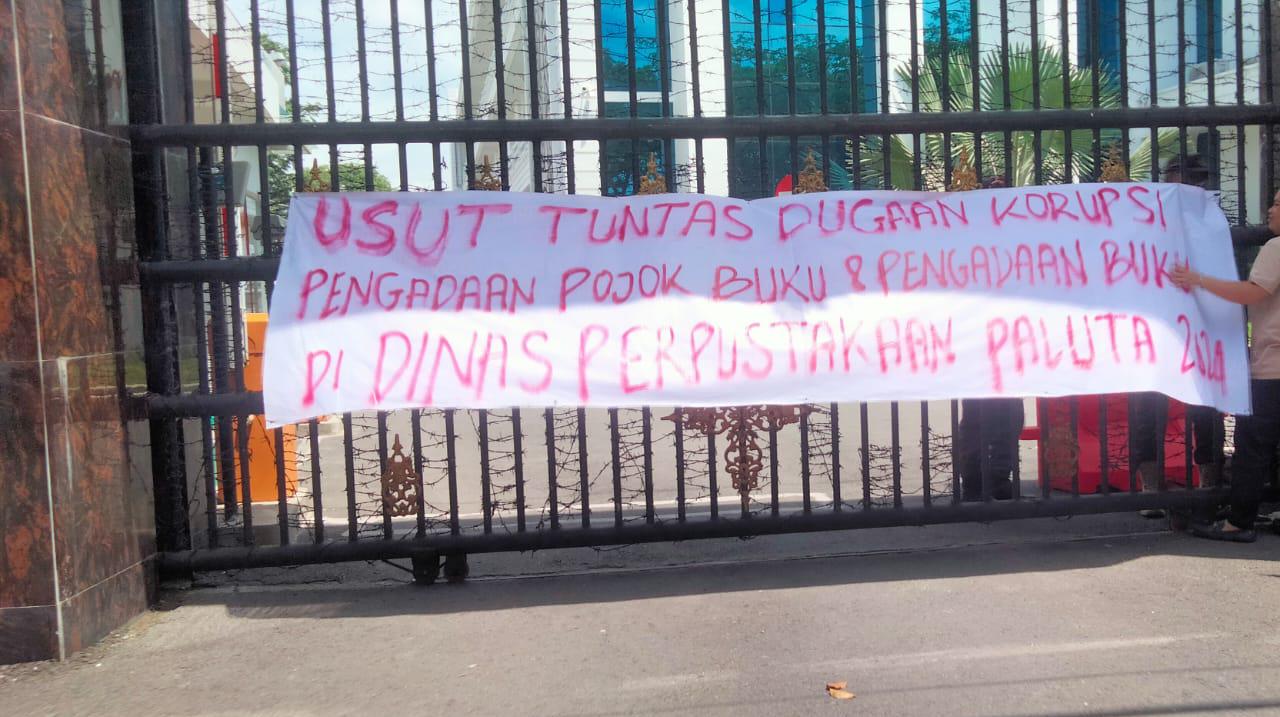 USUT TUNTAS DUGAAN KORUPSI
PENGADAAN POJOK BUKU & PENGADAAN BUKU
DI DINAS PERPUSTAKAAN PALUTA 2024